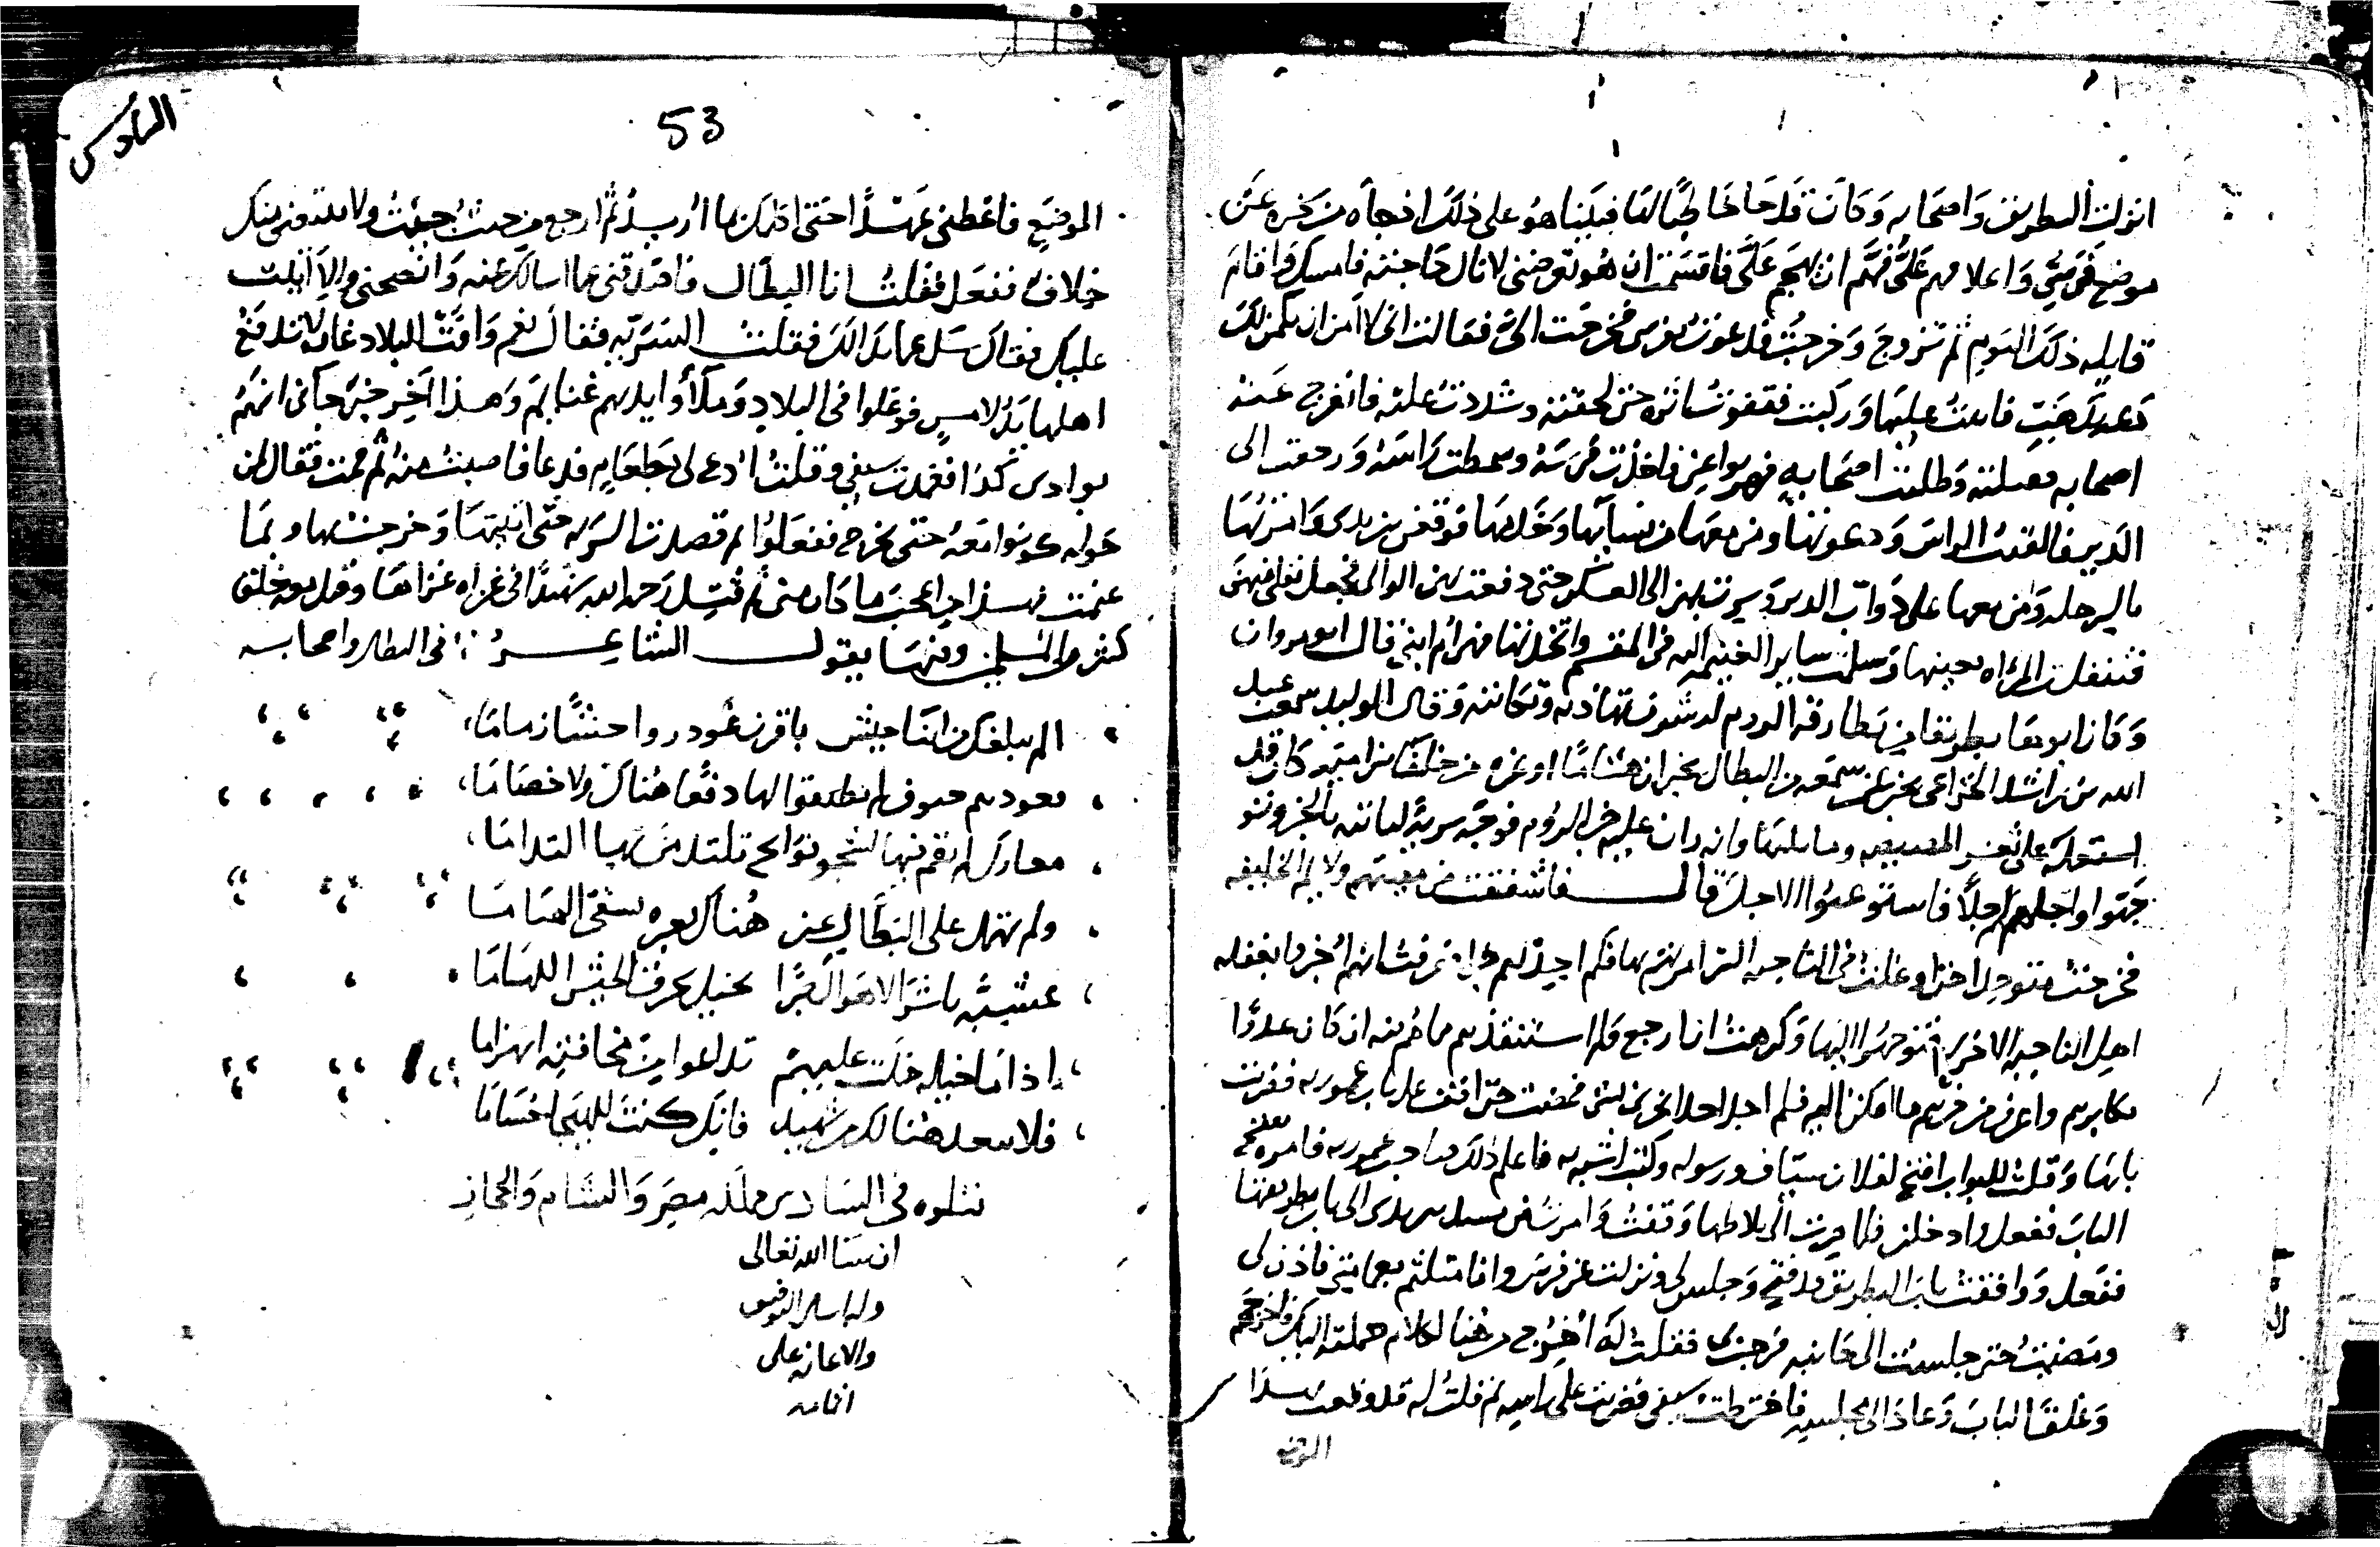 انزلت البطريق واصحابه وكان قد جا خاطبا لها فبينا هو على ذلك اذ جاه من ذكره عن
موضع فرسي واعلامهم علي فهم ان يهجم علي فاقسمت ان هو تعرضني لا نال حاجته فامسك واقام
قايله ذلك اليوم ثم تزوج وخرجت فدعوت بفرسي فخرجت الي فقالت اني لا امن ان يكمن لك
فابيت عليها وركبت فقفوت اثره حتى لحقته وشددت عليه فانفرج عنه
اصحابه فقتلته وطلبت اصحابه فهربوا عني فاخذت فرسه وسمطت راسه ورجعت الى
الدير فالقيت الراس ودعوتها ومن معها من نسايها وخدمها فوقفن بين يدي وامرتها
بالرحله ومن معها على دواب الدير وسرت بهن الى العسكر حتى دفعت بهن الى الوالي فجعل نفلي منهن
فتنفلت المراه بعينها وسلمت ساير الغنيمه في المقسم واتخذتها فهي ام ابني قال ابو مروان
وكان ابوها بطريقا من بطارقه الروم له شرف يهاديه ويكاتبه وقال الوليد سمعت عبد
الله بن راشد الخزاعي يخبر عن سمعه من البطال يخبر ان هشاما او غيره من خلفا بني اميه كان قد
استعمله على ثغر المصيصه وما يليها وانه راث عليه خبر الروم فوجه سريه لياتيه بالخبر
فتوجهوا واجلهم اجلا فاستوعبوا الاجل قال فاشفقت من مصيبتهم ولايمة الخليفه
فخرجت متوحدا حتى اوغلت في الناحيه التي امرتهم بها فلم اجد لهم خبرا فعرفت انهم اخبروا بغفله
اهل الناحيه الاخرى فتوجهوا اليها وكرهت ان ارجع ولم استنقذهم مما هم فيه ان كان عدوا
يكابرهم واعرف من خبرهم ما اسكن اليه فلم اجد احدا يخبرني بشي فمضيت حتى اقف على باب عموريه فضربت
بابها وقلت للبواب افتح لفلان سياف ورسوله وكنت اشبه به فاعلم ذلك صاحب عموريه فامره بفتح
الباب ففعل وادخلني فلما صرت الى بلاطها وقفت وامرت من يشتد بين يدي الى باب بطريقها
ففعل ووافقت باب البطريق قد فتح وجلس لي ونزلت عن فرسي وانا متلثم بعمامتي فاذن لي
ومضيت حتى جلست الى جانبه فرحب بي فقلت له اخرج من هنا لكلام حملته اليك فاخرجهم
وغلق الباب وعاد الى مجلسه فاخترطت سيفي فضربت على راسه ثم قلت له قد وقعت بهذا
الموضع
السادس
53
الموضع فاعطني عهدا حتى اكلمك بما اريد ثم ارجع من حيث جيت ولا يتبعني منك
خلاف ففعل فقلت انا البطال فاصدقني عما اسالك عنه وانصحني والا اتيت
عليك فقال سل عما بدا لك فقلت السريه فقال نعم وافت البلاد غاره لا يدفع
اهلها يد لامس فوغلوا في البلاد وملأوا ايديهم غنايم وهذا اخر خبر جاني انهم
بوادي كذا فغمدت سيفي وقلت ادع لي بطعام فدعا فاصبت منه ثم قمت فقال لمن
حوله كونوا معه حتى يخرج ففعلوا ثم قصدت السريه حتى اتيتها وخرجت بها وبما
غنمت فهذا من اعجب ما كان مني ثم قتل رحمه الله شهيدا في غزاه غزاها وقتل معه خلق
كثير من المسلمين وفيها يقول الشاعر في البطال واصحابه
الم يبلغك من انبا جيش باقرن غودروا جثثا زماما
تعودهم حتوف لم يطيقوا لها دفعا هناك ولا خصاما
معارك لم تقم فيها لشجو نوايح تلتدمن بها التداما
ولم تهمل على البطال عين هناك بعبره تشفي الهياما
عشيه باشر الاهوال صبرا بخيل يحرق الجيش اللهاما
اذا ما خيله حملت عليهم تداعوا من مخافته انهزاما
فلا تبعد هنالك من شهيد فانك كنت للهيجا حساما
نتلوه في السادس مملكه مصر والشام والحجاز
ان شا الله تعالى
وبالله التوفيق
والاعانه على
اتمامه